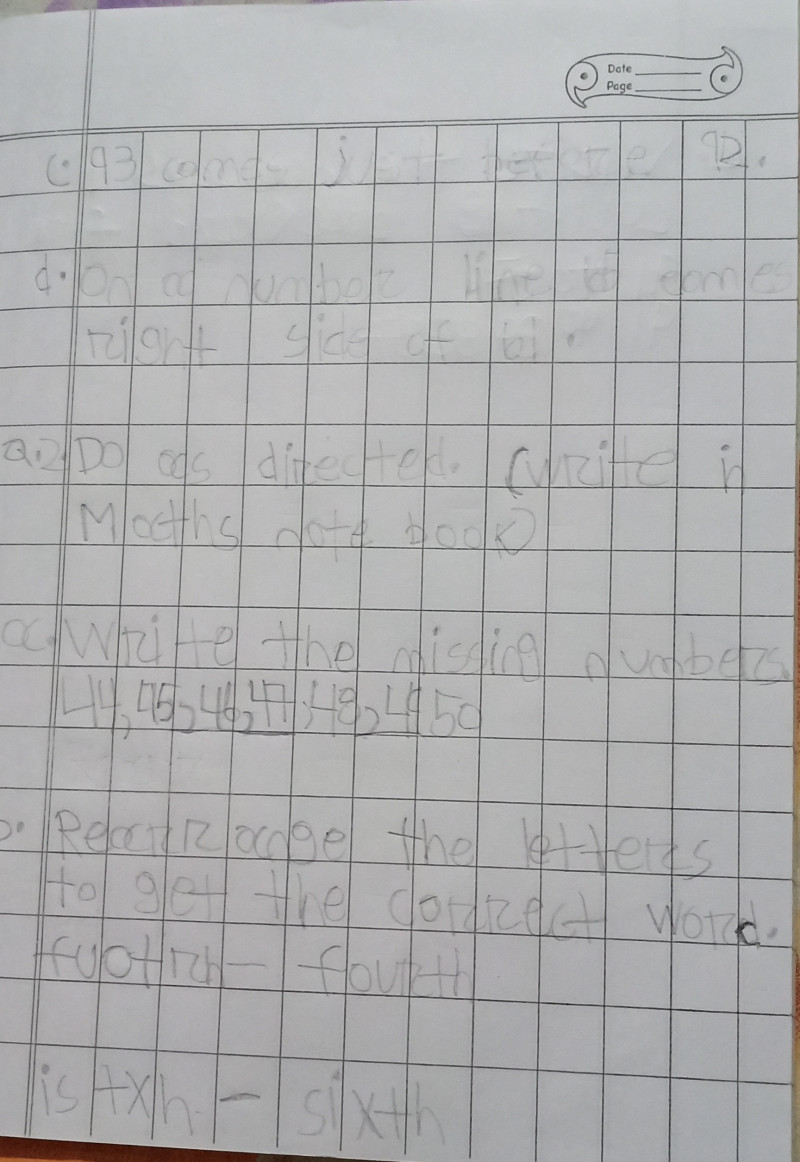 Date
Page
c. 93 comes just before 92.
d. On a number line it comes
right side of
Q.2 Do as directed. (write in
Maths note book)
a. Write the missing numbers.
44, 45, 46, 47, 48, 49 50
b. Rearrange the letters
to get the correct word.
fuotrh - fourth
istxh - sixth